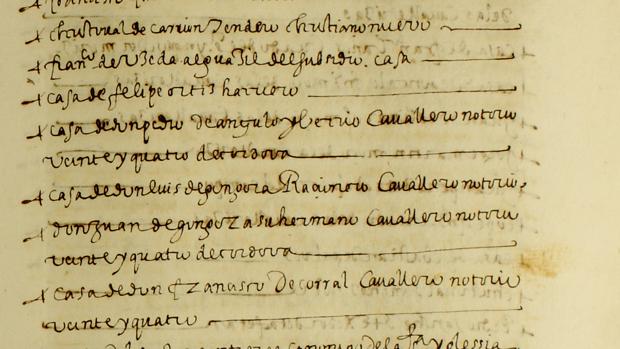 christoval de carrion Tendero christiano nuevo
franco de uzeda alguazil del subsidio. casa
casa de felipe ortiz harriero
casa de don pedro de angulo y berrio Cavallero notorio
veinte y quatro de cordova
casa de don luis de gongora Racionero Cavallero notorio,
don Juan de gongora su hermano Cavallero notorio
veinte y quatro de cordova
casa de don de corral Cavallero notorio
veinte y quatro
de la yglessia